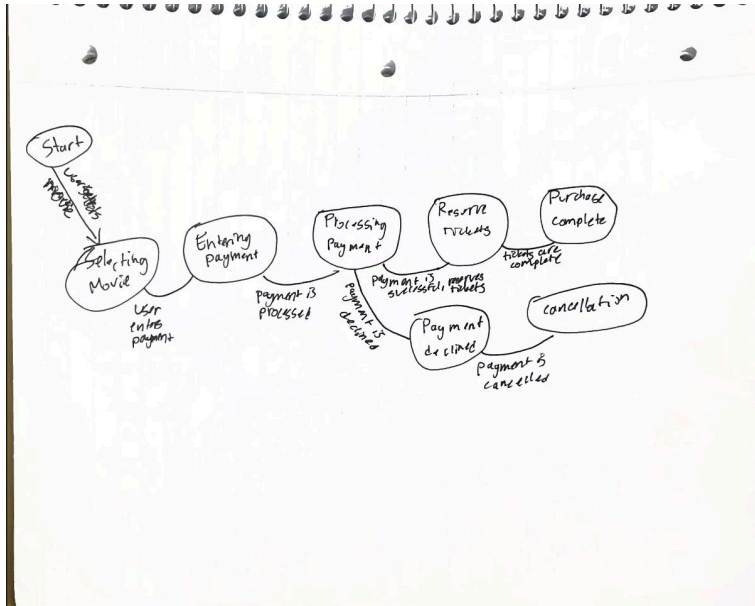 Start
user selects
movie
Selecting
Movie
user
enters
payment
Entering
payment
payment is
processed
Processing
Payment
payment is
successful, reserves
tickets
Reserve
tickets
tickets are
complete
Purchase
complete
payment is
declined
Payment
declined
payment is
cancelled
cancellation